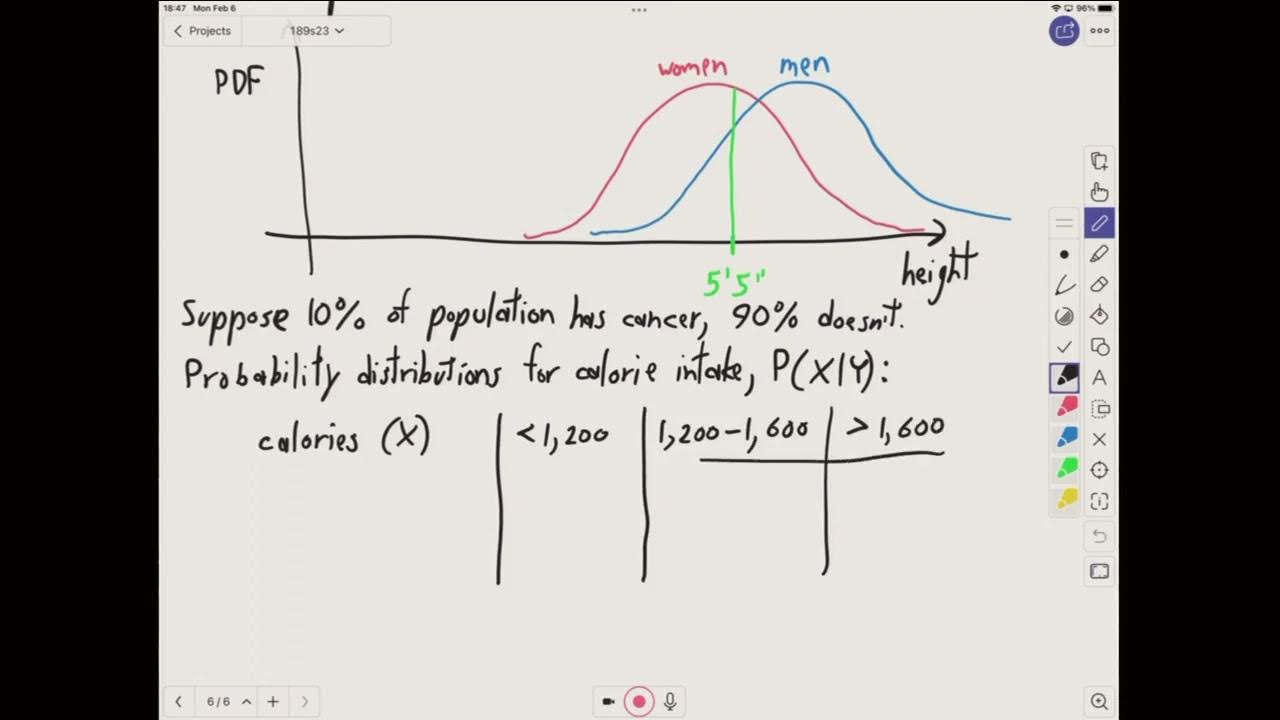 18:47 Mon Feb 6
96%
Projects
189s23
PDF
women
men
5'5"
height
Suppose 10% of population has cancer, 90% doesn't.
Probability distributions for calorie intake, P(X|Y):
calories (X) < 1,200 1,200-1,600 > 1,600
A
6/6